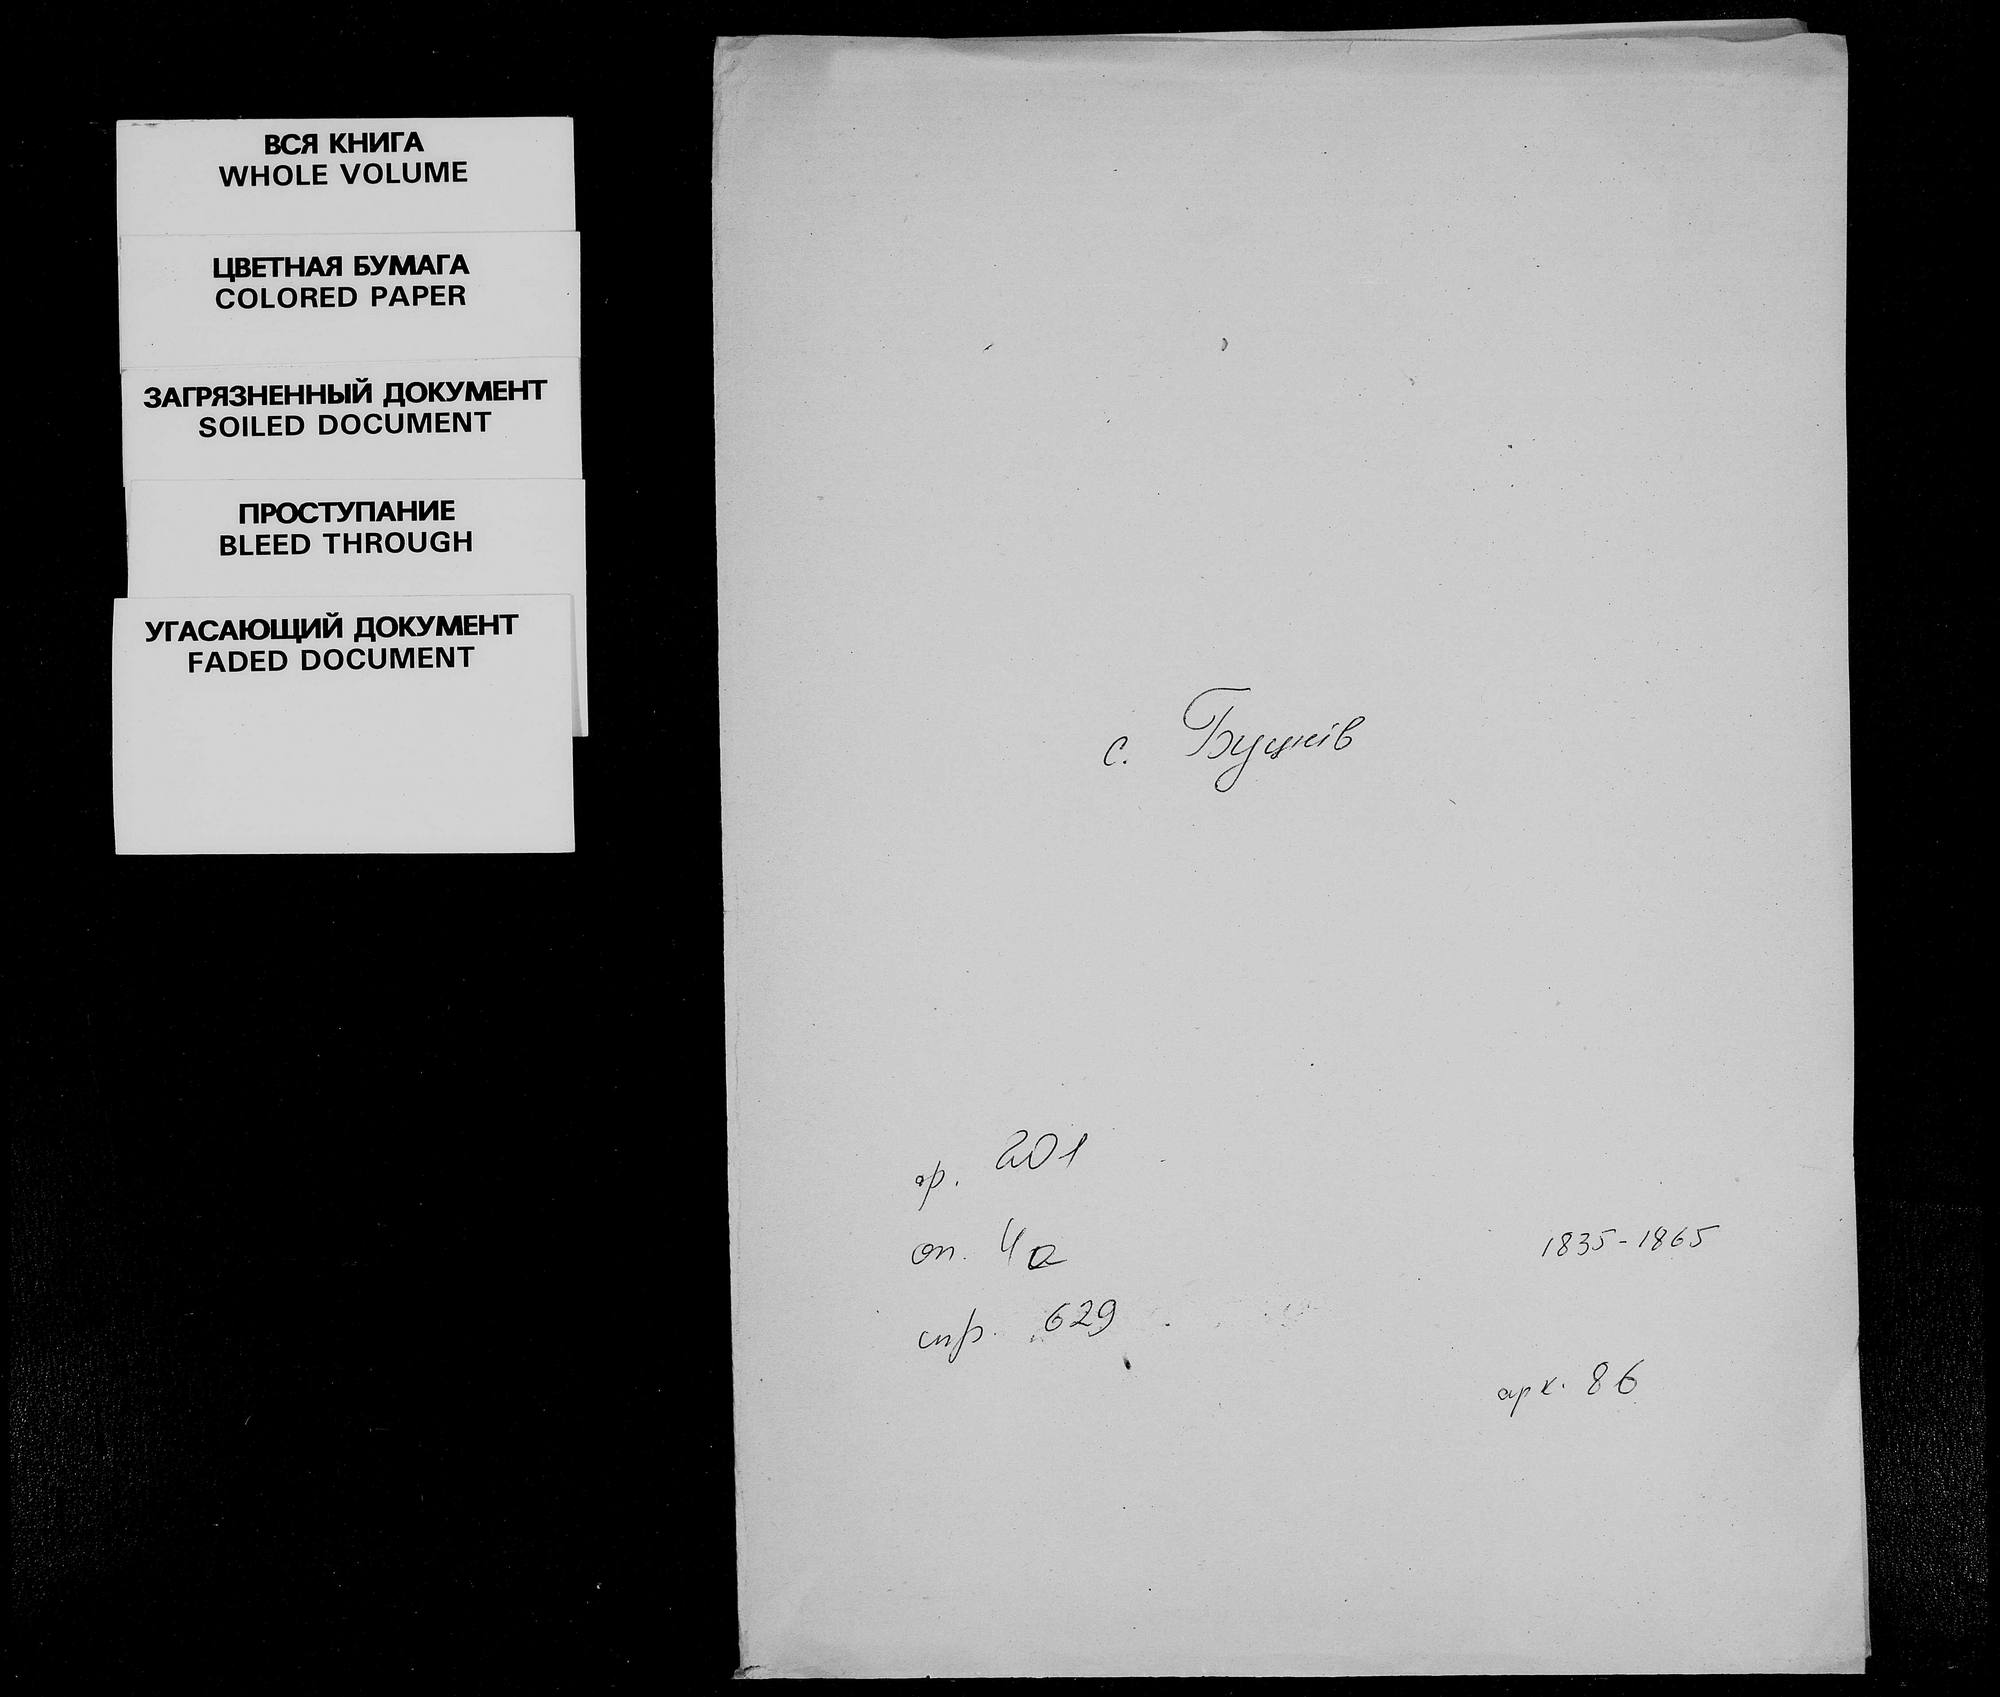 ВСЯ КНИГА
WHOLE VOLUME
ЦВЕТНАЯ БУМАГА
COLORED PAPER
ЗАГРЯЗНЕННЫЙ ДОКУМЕНТ
SOILED DOCUMENT
ПРОСТУПАНИЕ
BLEED THROUGH
УГАСАЮЩИЙ ДОКУМЕНТ
FADED DOCUMENT
с. Буцнів
ф. 201
оп. 4а
1835-1865
спр. 629
арк. 86